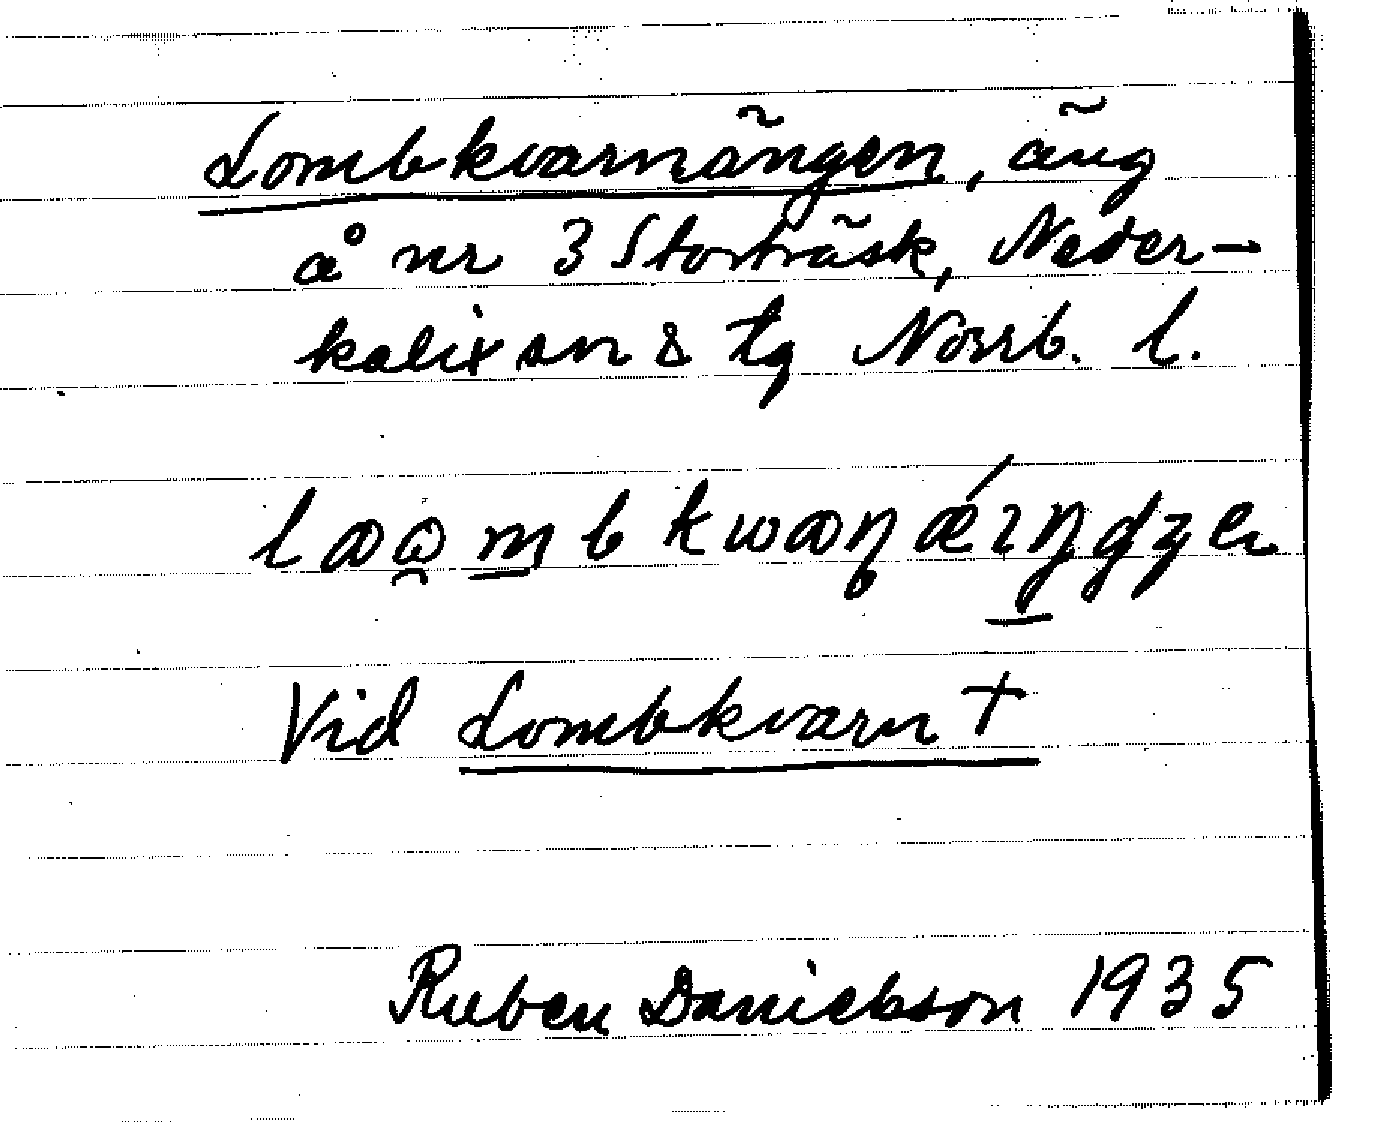 Lombkvarnängen, äng
å nr 3 Storträsk, Neder-
kalix sn & tg Norrb. l.
Vid Lombkvarn †
Ruben Danielsson 1935